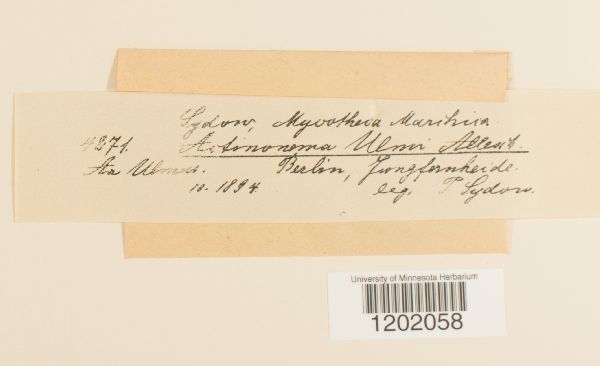 Sydow, Mycotheca Marchica
4271. Actinonema Ulmi Allesch.
An Ulmus. Berlin, Jungfernheide.
10. 1894. leg. P. Sydow.
University of Minnesota Herbarium
1202058